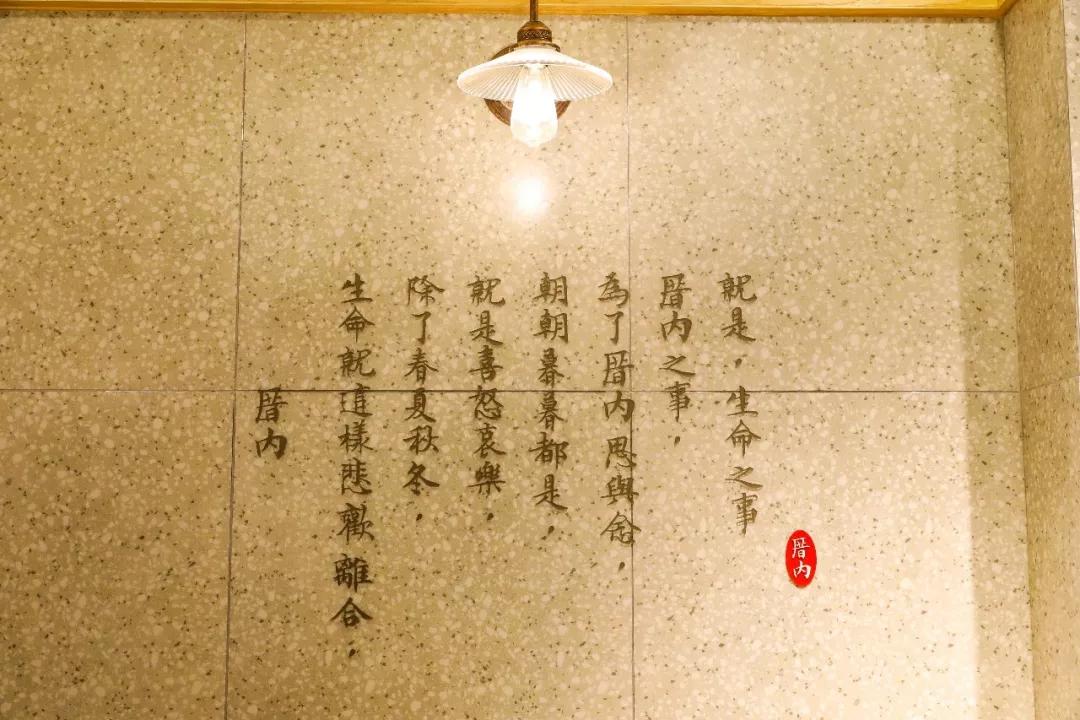 厝内
生命就這樣悲歡離合，
除了春夏秋冬，
就是喜怒哀樂，
朝朝暮暮都是，
為了厝内思與念，
厝内之事，
就是，生命之事
厝内